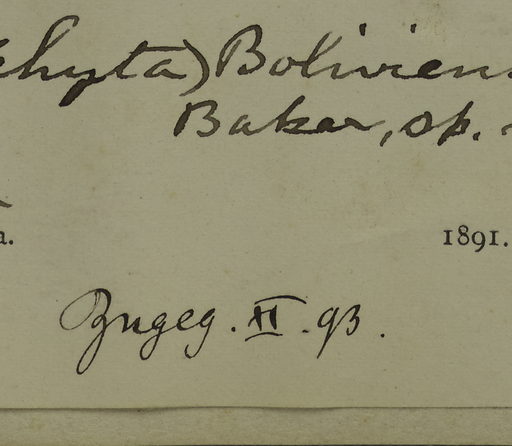 hyta) Boliviens
Baker, sp.
a. 1891.
Zugeg. II. 93.